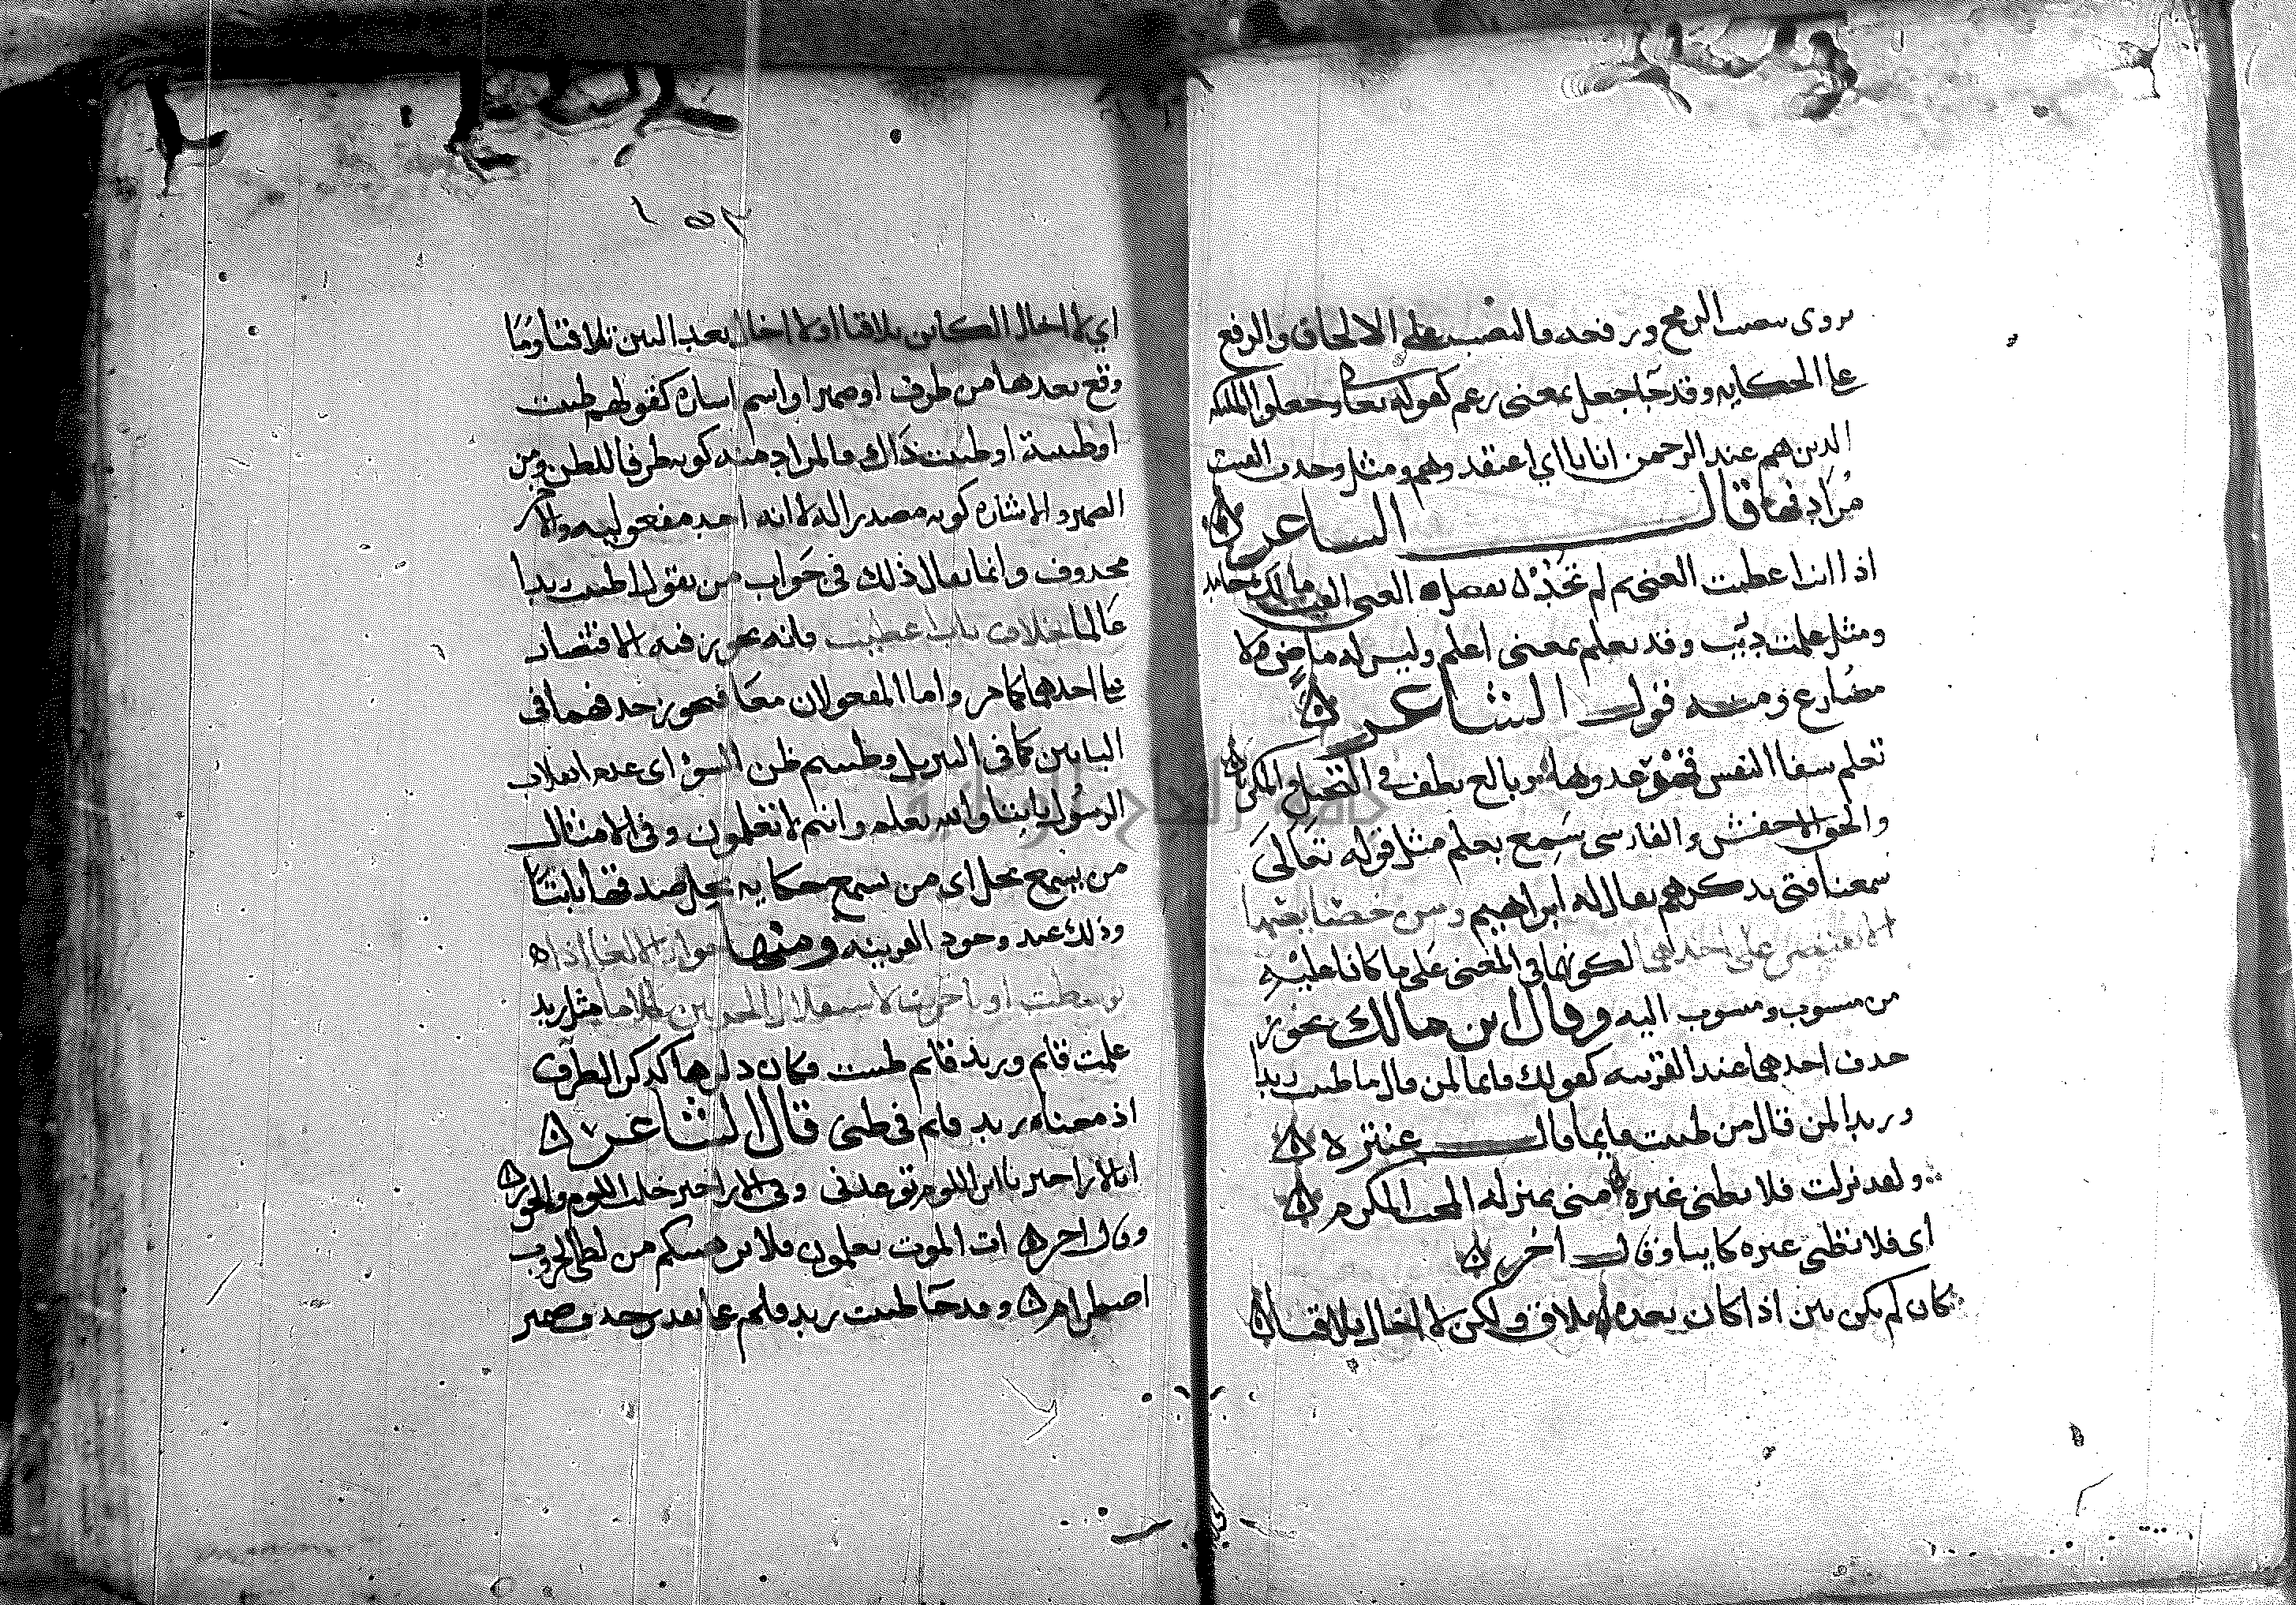 يروى بنصب الرمح ورفعه فالنصب على الالحاق والرفع
على الحكايه وقد جا جعل بمعنى زعم كقوله تعا وجعلوا الملئكه
الذين هم عند الرحمن اناثا اي اعتقدوهم ومثل وجدت الفيت
مرادفها قال الشاعر
اذا انت اعطيت الغنى ثم لم تجد بفضل الغنى الفيت مالك حامد
ومثل علمت دريت وقد تعلم بمعنى اعلم وليس له ماض ولا
مضارع ومنه قول الشاعر
تعلم شفا النفس قهر عدوها فبالغ بلطف في التحيل والمكر
والحق الاخفش والفارسى سمع بعلم مثل قوله تعالى
سمعنا فتى يذكرهم يقال له ابراهيم ومن خصايصها
الا يقتصر على احدهما لكونهما في المعنى على ما كانا عليه
من منسوب ومنسوب اليه وقال ابن مالك يجوز
حذف احدهما عند القرينه كقولك قايما لمن قال ما ظننت زيدا
وزيدا لمن قال من ظننت قايما قال عنتره
ولقد نزلت فلا تظني غيره منى بمنزله المحب المكرم
اى فلا تظنى غيره كاينا وقال اخر
كان لم يكن بين اذا كان بعده تلاق ولكن لا اخال تلاقيا
١٥٣
اي لا اخال الكاين تلاقيا او لا اخال بعد البين تلاقيا وما
وقع بعدها من ظرف او ضمير او اسم اشاره كقولهم ظننت
او ظننته او ظننت ذاك فالمراد منه كونه ظرفا للظن ومن
الضمير والاشاره كونه مصدرا له لا انه احد مفعوليه والاخر
محذوف وانما يقال ذلك في جواب من يقول اظننت زيدا
عالما بخلاف باب اعطيت فانه يجوز فيه الاقتصار
على احدهما كما مر واما المفعولان معا فيجوز حذفهما في
البابين كما في التنزيل وظننتم ظن السوء اى عدم انقلاب
الرسول ايابتا والله يعلم وانتم لا تعلمون وفي الامثال
من يسمع يخل اى من يسمع حكايه يخل صدقها ثابتا
وذلك عند وجود القرينه ومنها جواز الالغا اذا
توسطت او تاخرت لاستقلال الجزين كلاما مثل زيد
علمت قايم وزيد قايم ظننت فكان ذكرها كذكر الظرف
اذ معناه زيد قايم في ظنى قال الشاعر
ابالاراجيز يا ابن اللوم توعدنى وفي الاراجيز خلت اللوم والخور
وقال اخر ات الموت تعلمون فلا يرهبكم من لظى الحروب
اضطرام وقد جا ظننت زيد قايم على تقدير حذف ضمير